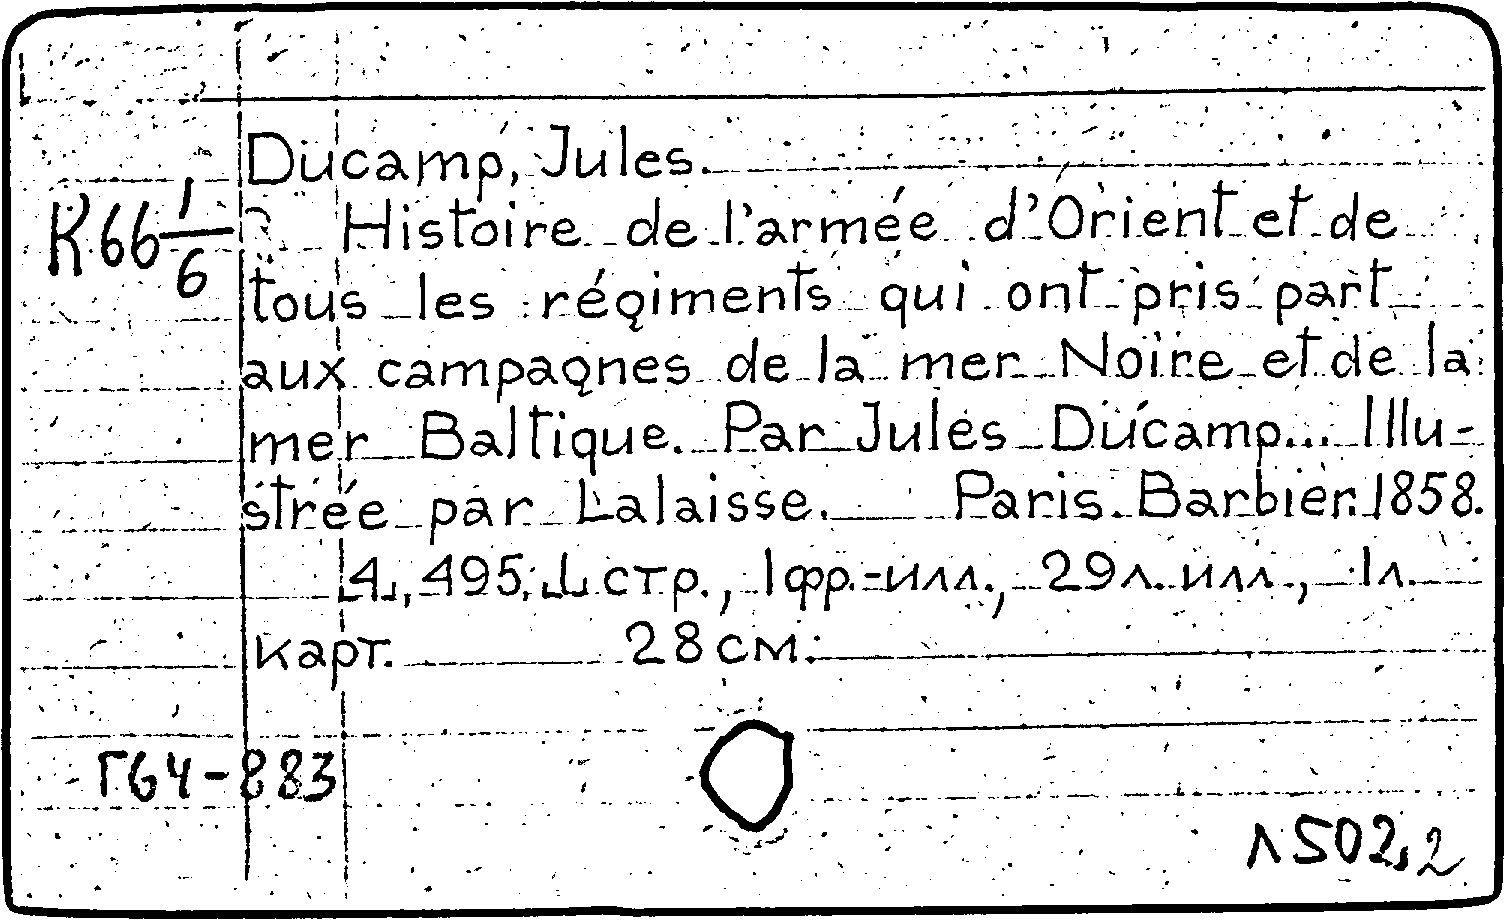 Ducamp, Jules.
К66 1/6
Histoire de l'armée d'Orient et de
tous les régiments qui ont pris part
aux campagnes de la mer Noire et de la
mer Baltique. Par Jules Ducamp... Illu-
strée par Lalaisse. Paris. Barbier. 1858.
[4], 495, [1] стр., 1 фр.-илл., 29 л. илл., 1 л.
карт. 28 см.
Г64-883
Л502,2